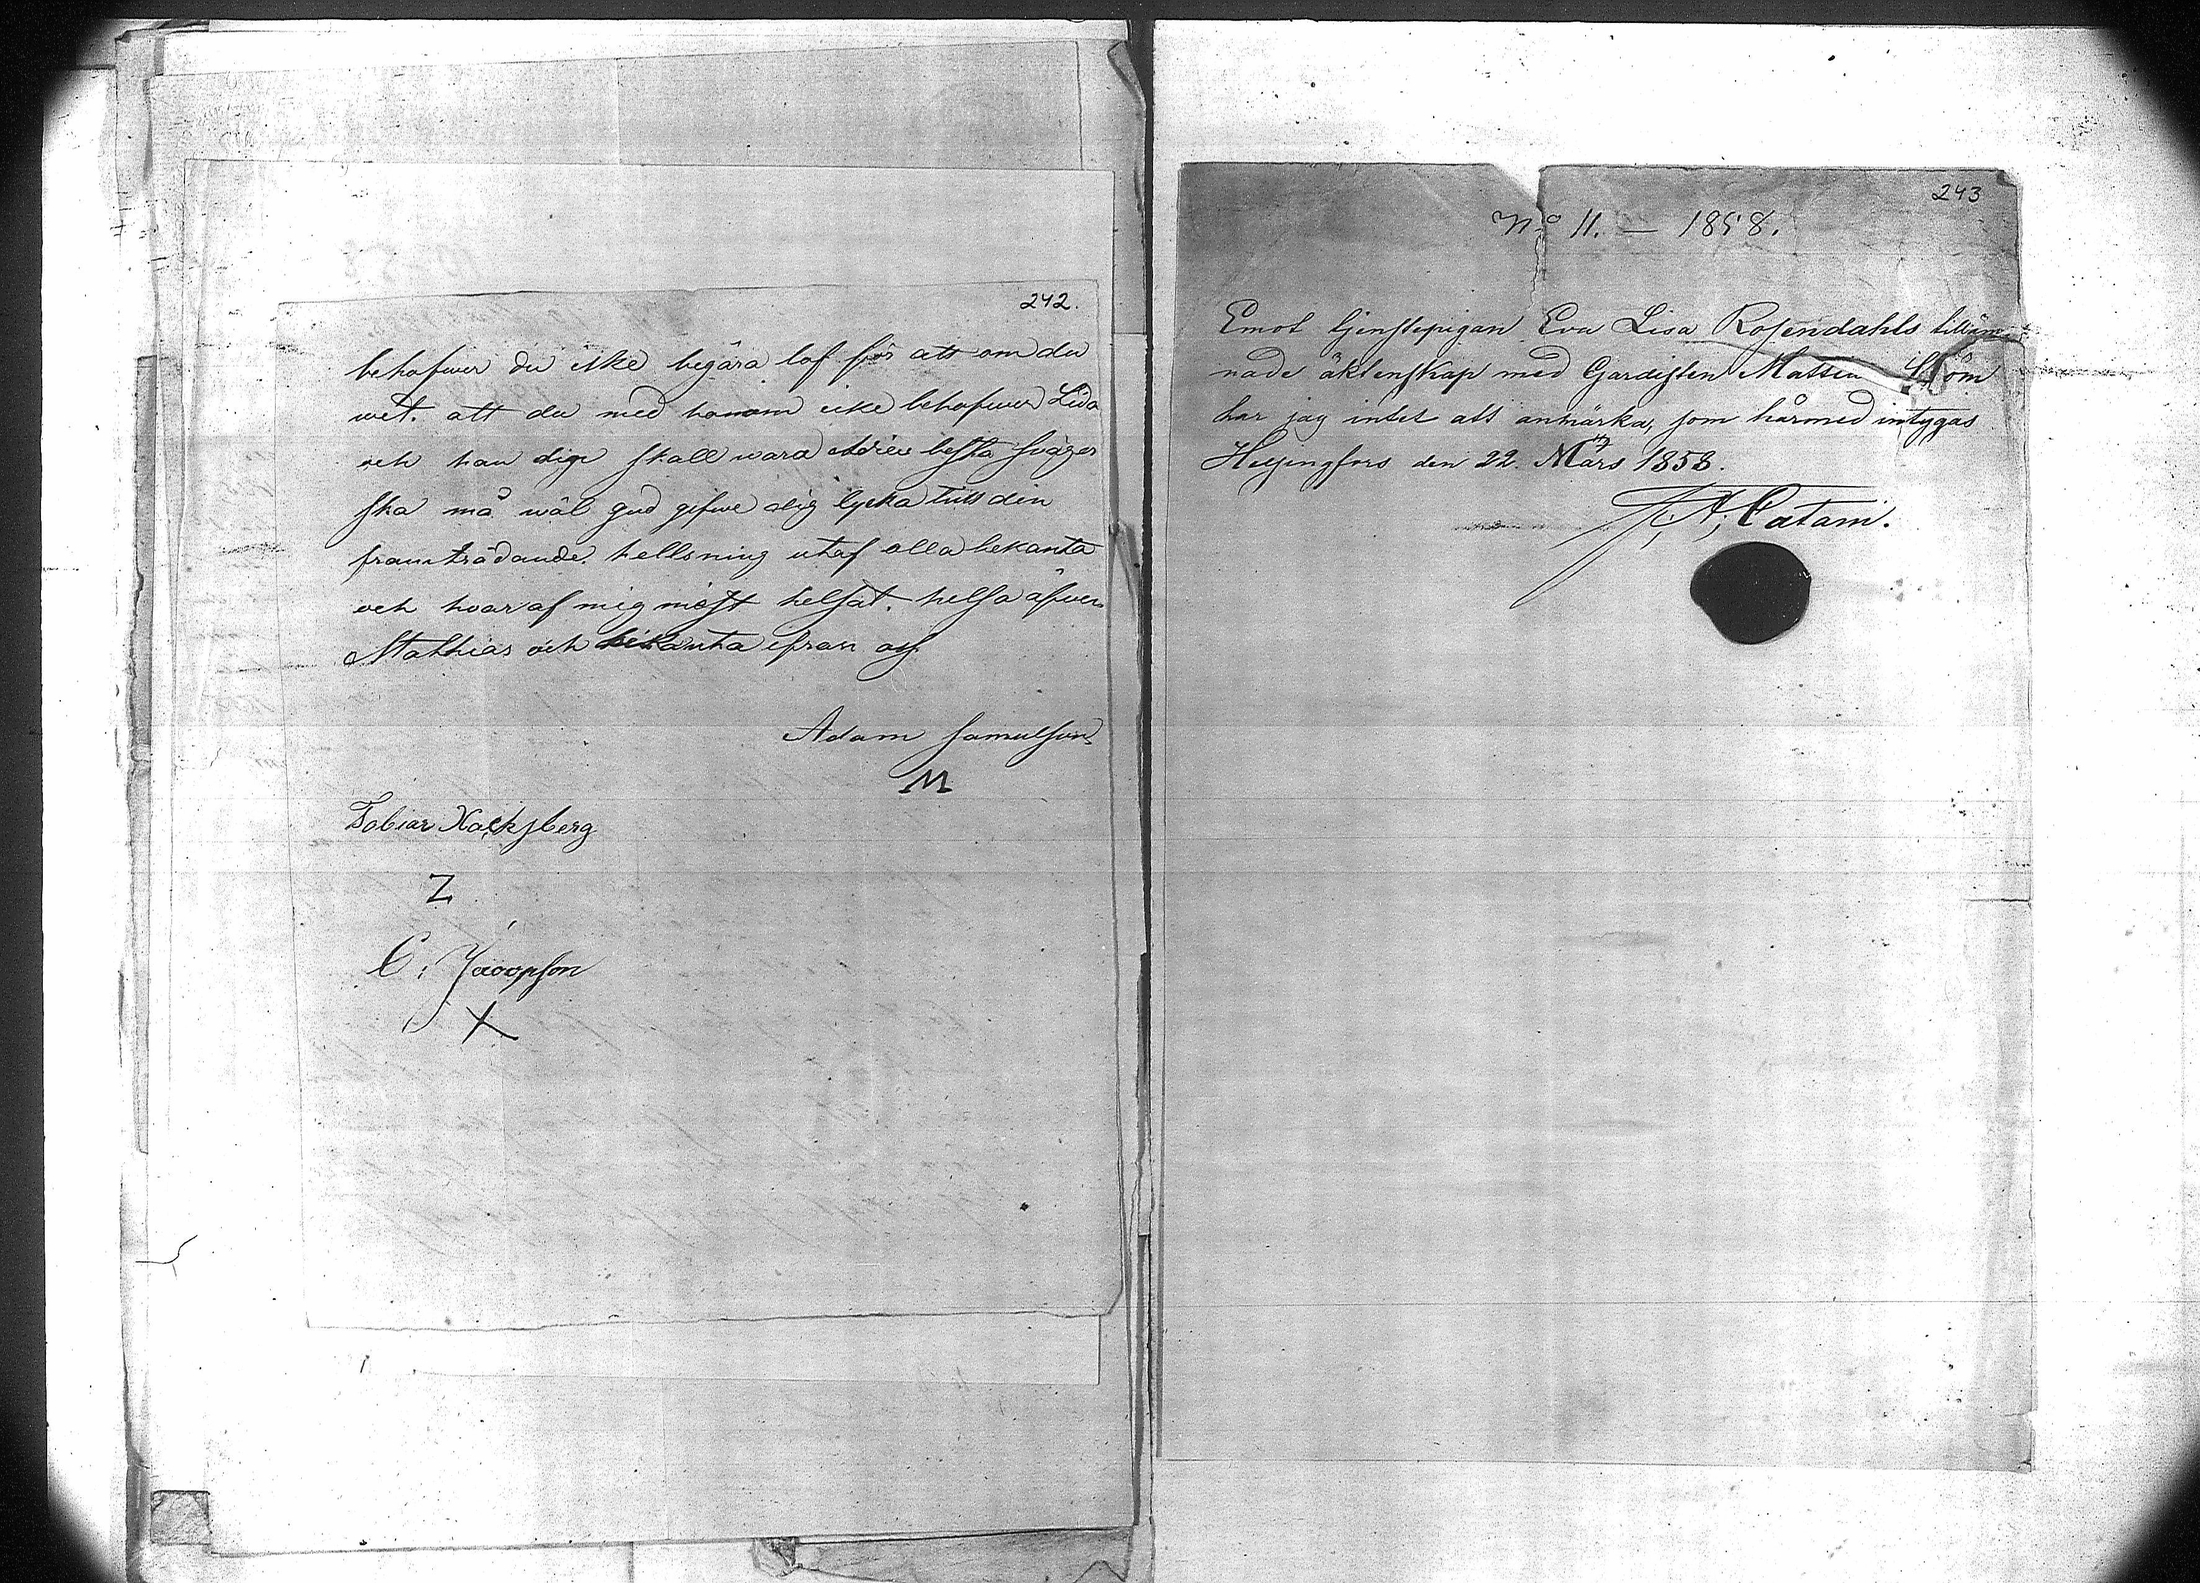 242.
behofwer du icke begära lof för att om du
wet. att du med honom icke behofwer Lida
och han dig skall wara Adieu bästa Swåger
ska må wäl gud gifwe dig lycka till din
framträdande. hellsning utaf alla bekanta
och hvar af mig mäst helsat. helsa äfwen
Mathias och bekanta ifran oss
Adam Samulson
M
Tobias Kacksberg
Z
C: Jacopson
X
243
No 11. — 1858.
Emot tjenstepigan Eva Lisa Rosendahls tilläm-
nade äktenskap med Gardisten Matts Ström
har jag intet att anmärka, som härmed intygas
Helsingfors den 22. Mars 1858.
F; A; Catani.